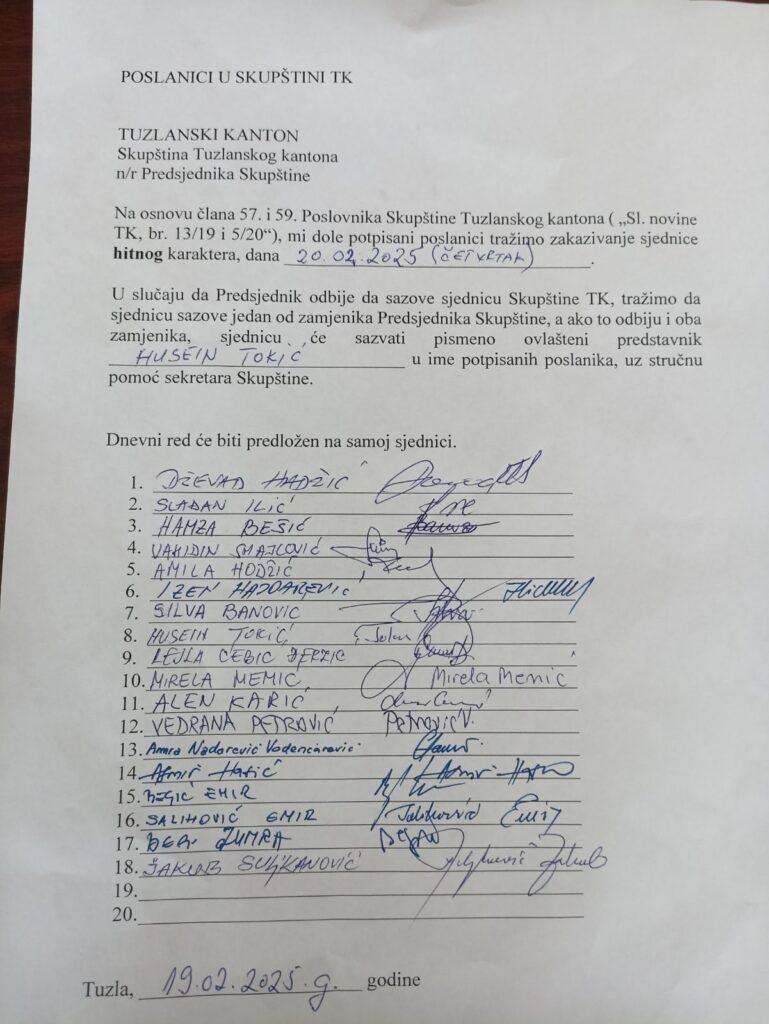 POSLANICI U SKUPŠTINI TK
TUZLANSKI KANTON
Skupština Tuzlanskog kantona
n/r Predsjednika Skupštine
Na osnovu člana 57. i 59. Poslovnika Skupštine Tuzlanskog kantona ( „Sl. novine
TK, br. 13/19 i 5/20“), mi dole potpisani poslanici tražimo zakazivanje sjednice
hitnog karaktera, dana 20.02.2025 (ČETVRTAK).
U slučaju da Predsjednik odbije da sazove sjednicu Skupštine TK, tražimo da
sjednicu sazove jedan od zamjenika Predsjednika Skupštine, a ako to odbiju i oba
zamjenika, sjednicu će sazvati pismeno ovlašteni predstavnik
HUSEIN TOKIĆ u ime potpisanih poslanika, uz stručnu
pomoć sekretara Skupštine.
Dnevni red će biti predložen na samoj sjednici.
1. DŽEVAD HADŽIĆ
2. SLAĐAN ILIĆ
3. HAMZA BEŠIĆ
4. VAHIDIN SMAJLOVIĆ
5. AMILA HODŽIĆ
6. IZEN HAJDAREVIĆ
7. SILVA BANOVIĆ
8. HUSEIN TOKIĆ
9. LEJLA
10. MIRELA MEMIĆ Mirela Memić
11. ALEN KARIĆ
12. VEDRANA PETROVIĆ Petrović V.
13. Amra Nadarević Vodenčarević
14. Hasić
15. BEGIĆ EMIR
16. SALIHOVIĆ EMIR Salihović Emir
17. ZUMRA
18. JAKUB SULJKANOVIĆ
19.
20.
Tuzla, 19.02.2025.g. godine